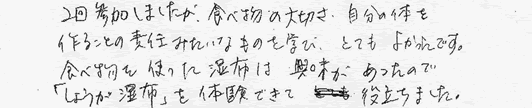 2回参加しましたが、食べ物の大切さ、自分の体を
作ることの責任みたいなものを学び、とてもよかったです。
食べ物を使った湿布は興味があったので
「しょうが湿布」を体験できて役立ちました。